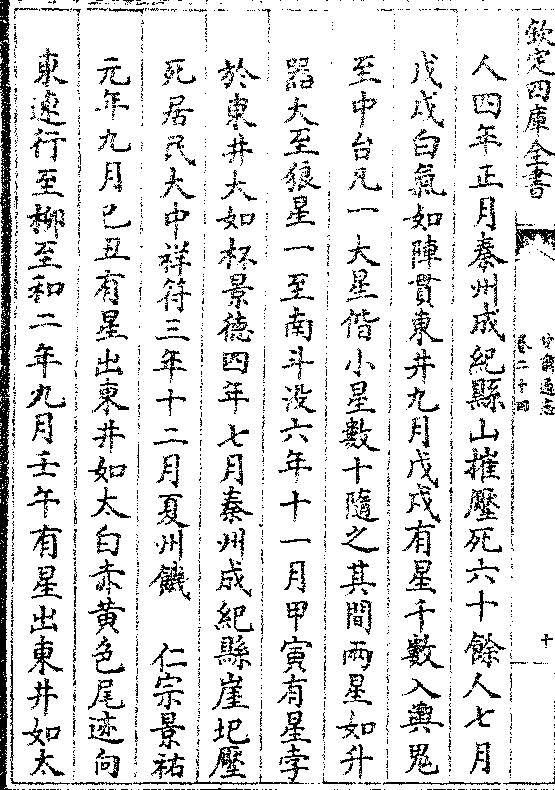 欽定四庫全書
甘肅通志
卷二十四
十
人四年正月秦州成紀縣山摧壓死六十餘人七月
戊戌白氣如陣貫東井九月戊戌有星千數入輿鬼
至中台凡一大星偕小星數十隨之其間兩星如升
器大至狼星一至南斗没六年十一月甲寅有星孛
於東井大如杯景德四年七月秦州成紀縣崖圯壓
死居民大中祥符三年十二月夏州饑　仁宗景祐
元年九月己丑有星出東井如太白赤黄色尾迹向
東速行至柳至和二年九月壬午有星出東井如太